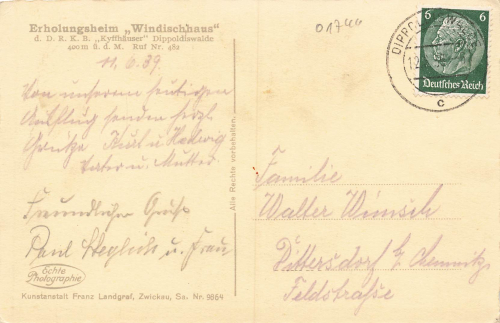 Erholungsheim „Windischhaus"
d. D. R. K. B. „Kyffhäuser" Dippoldiswalde
400m ü. d. M. Ruf Nr. 482
11.6.39.
Von unserem heutigen
Ausflug senden herzl.
Grüße Kurl u. Hedwig
Vater u. Mutter
Freundlicher Gruß
Paul u. Frau
Echte
Photographie
Kunstanstalt Franz Landgraf, Zwickau, Sa. Nr. 9864
Alle Rechte vorbehalten.
01744
6 6
Deutsches Reich
DIPPOL
12
c
Familie
Walter Wünsch
Dittersdorf b/ Chemnitz
Feldstraße